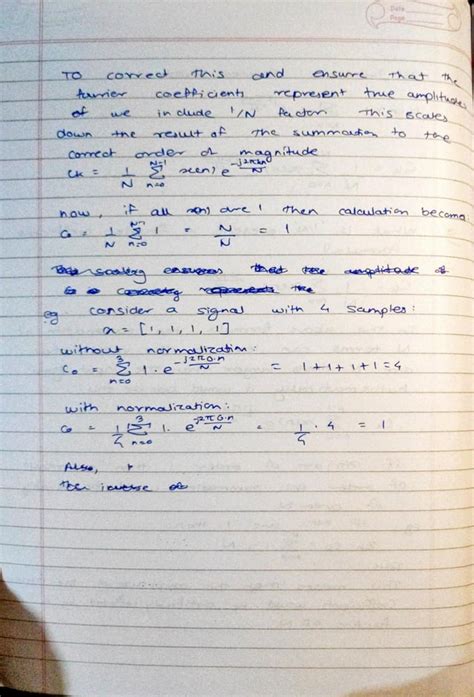 Date
Page
To correct this and ensure that the
furrier coefficients represent true amplitudes
of we include 1/N factor This scales
down the result of the summation to the
correct order of magnitude
Ck = 1/N Σ_{n=0}^{N-1} x(n) e^{-j2πkn/N}
now, if all x(n) are 1 then calculation becomes
C0 = 1/N Σ_{n=0}^{N-1} 1 = N/N = 1
This scaling ensures that the amplitude of
correctly represents the
eg consider a signal with 4 samples:
x = [1, 1, 1, 1]
without normalization:
C0 = Σ_{n=0}^{3} 1 · e^{-j2π0·n/N} = 1+1+1+1=4
with normalization:
C0 = 1/4 Σ_{n=0}^{3} 1 · e^{-j2π0·n/N} = 1/4 · 4 = 1
Also,
The inverse